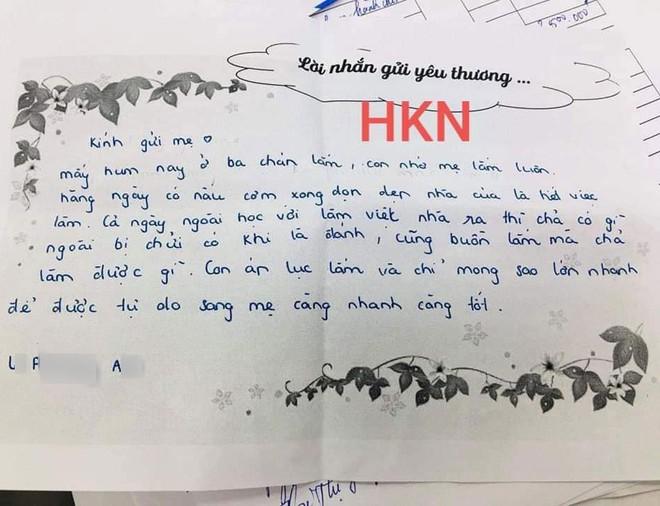 2.500.000
Lời nhắn gửi yêu thương ...
HKN
Kính gửi mẹ ♡
mấy hum nay ở ba chán lắm, con nhớ mẹ lắm luôn.
hằng ngày có nấu cơm xong dọn dẹp nhà cửa là hết việc
làm. Cả ngày ngoài học với làm việt nhà ra thì chả có gì
ngoài bị chửi có khi là đánh, cũng buồn lắm mà chả
làm được gì. Con áp lục lắm và chỉ mong sao lớn nhanh
để được tự do sang mẹ càng nhanh càng tốt.